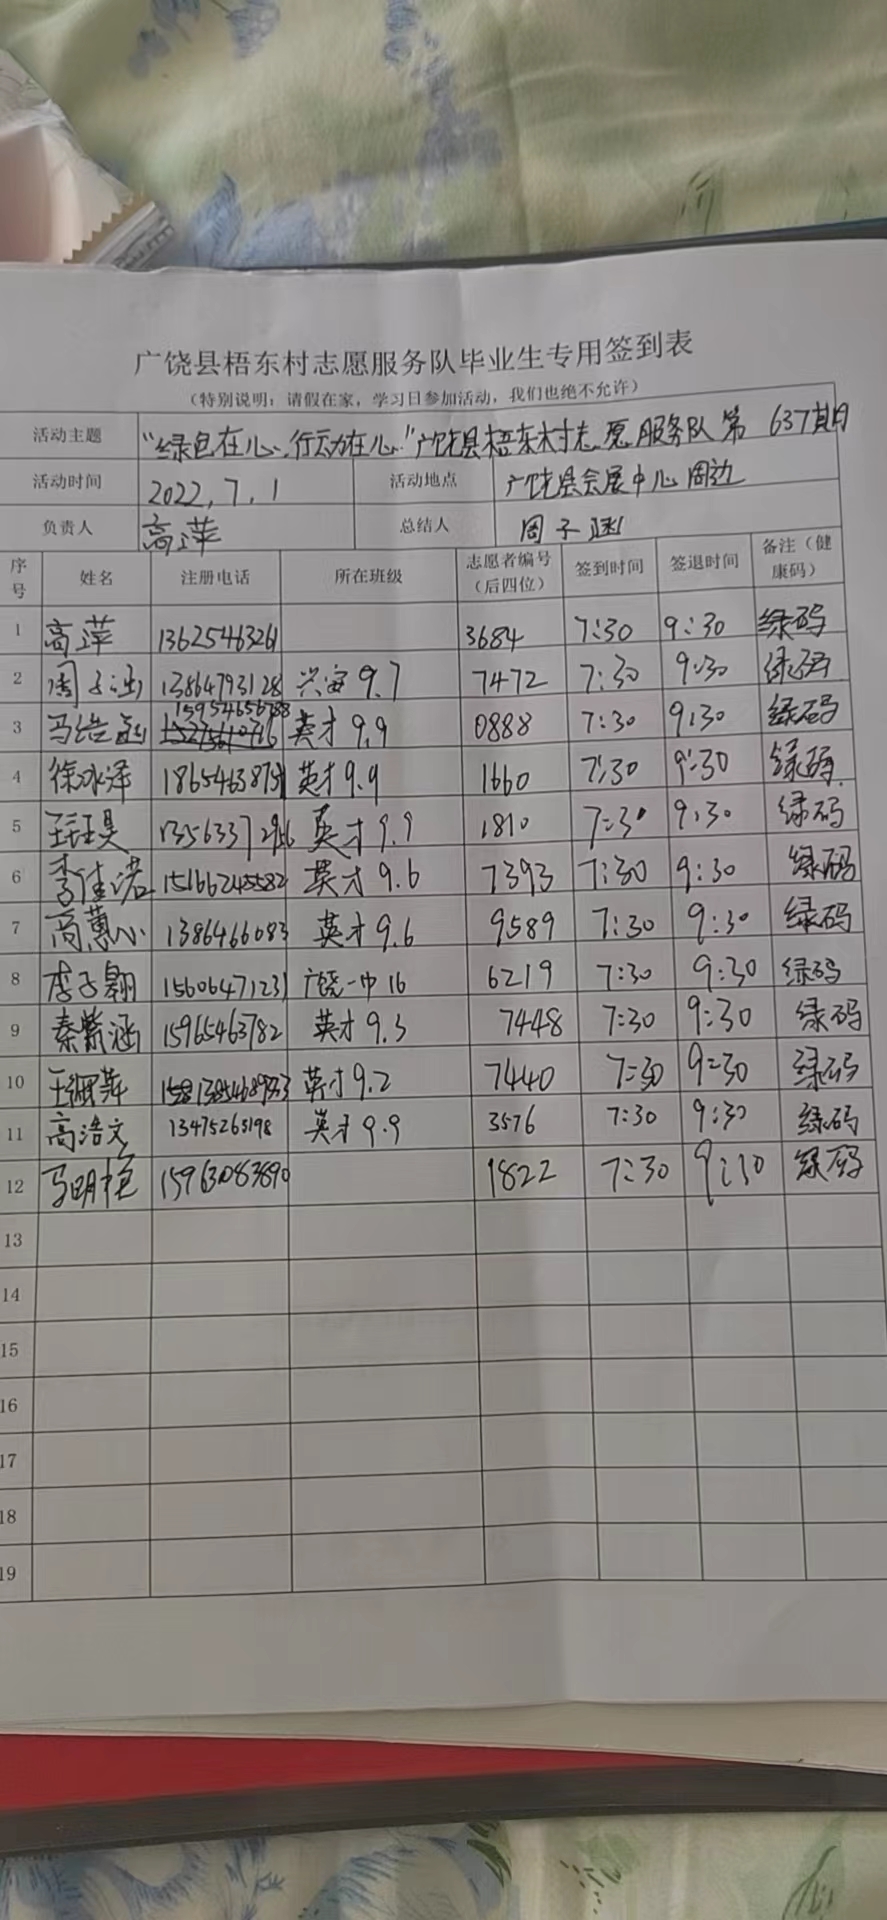 广饶县梧东村志愿服务队毕业生专用签到表
（特别说明：请假在家，学习日参加活动，我们也绝不允许）
活动主题 “绿色在心、行动在心”广饶县梧东村志愿服务队第 637期
活动时间 2022，7，1 活动地点 广饶县会展中心周边
负责人 高萍 总结人 周子涵
序号 姓名 注册电话 所在班级 志愿者编号（后四位） 签到时间 签退时间 备注（健康码）
1 高萍 13625463261 3684 7:30 9:30 绿码
2 周子涵 13864793128 兴安9.7 7472 7:30 9:30 绿码
3 15954656788 英才9.9 0888 7:30 9:30 绿码
4 徐冰泽 英才9.9 1660 7:30 9:30 绿码
5 英才9.9 1810 7:30 9:30 绿码
6 李佳诺 15166245582 英才9.6 7393 7:30 9:30 绿码
7 高蕙心 1386466083 英才9.6 9589 7:30 9:30 绿码
8 李子翱 15606471231 广饶一中16 6219 7:30 9:30 绿码
9 秦紫涵 15965463782 英才9.3 7448 7:30 9:30 绿码
10 英才9.2 7440 7:30 9:30 绿码
11 高浩文 13475265198 英才9.9 3576 7:30 9:30 绿码
12 15963083890 1822 7:30 9:30 绿码
13
14
15
16
17
18
19